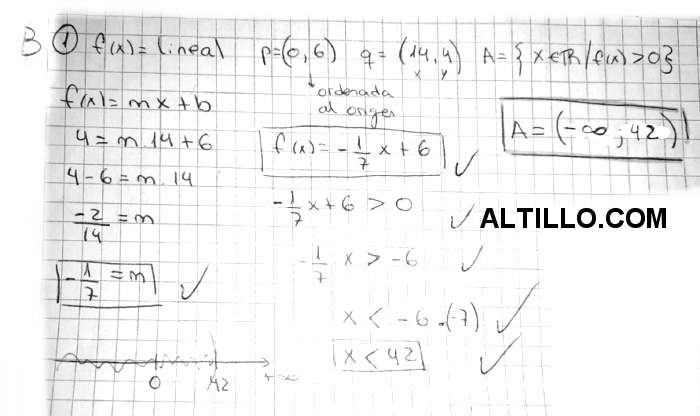 B ① f(x) = lineal p=(0,6) q=(14,4) A={x∈ℝ/f(x)>0}
x y
ordenada
al origen
f(x)=mx+b
4=m.14+6
4-6=m.14
-2/14=m
-1/7=m
f(x)=-1/7x+6
-1/7x+6>0
-1/7x>-6
x<-6.(-7)
x<42
A=(-∞;42)
ALTILLO.COM
0 42 +∞